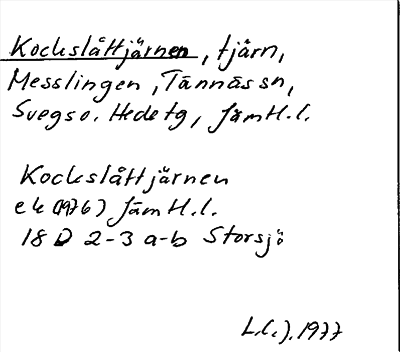 Kockslåttjärnen, tjärn,
Messlingen, Tännäs sn,
Svegs o. Hede tg, JämtH.l.
Kockslåttjärnen
ek (1976) JämtH.l.
18 D 2-3 a-b Storsjö
1977